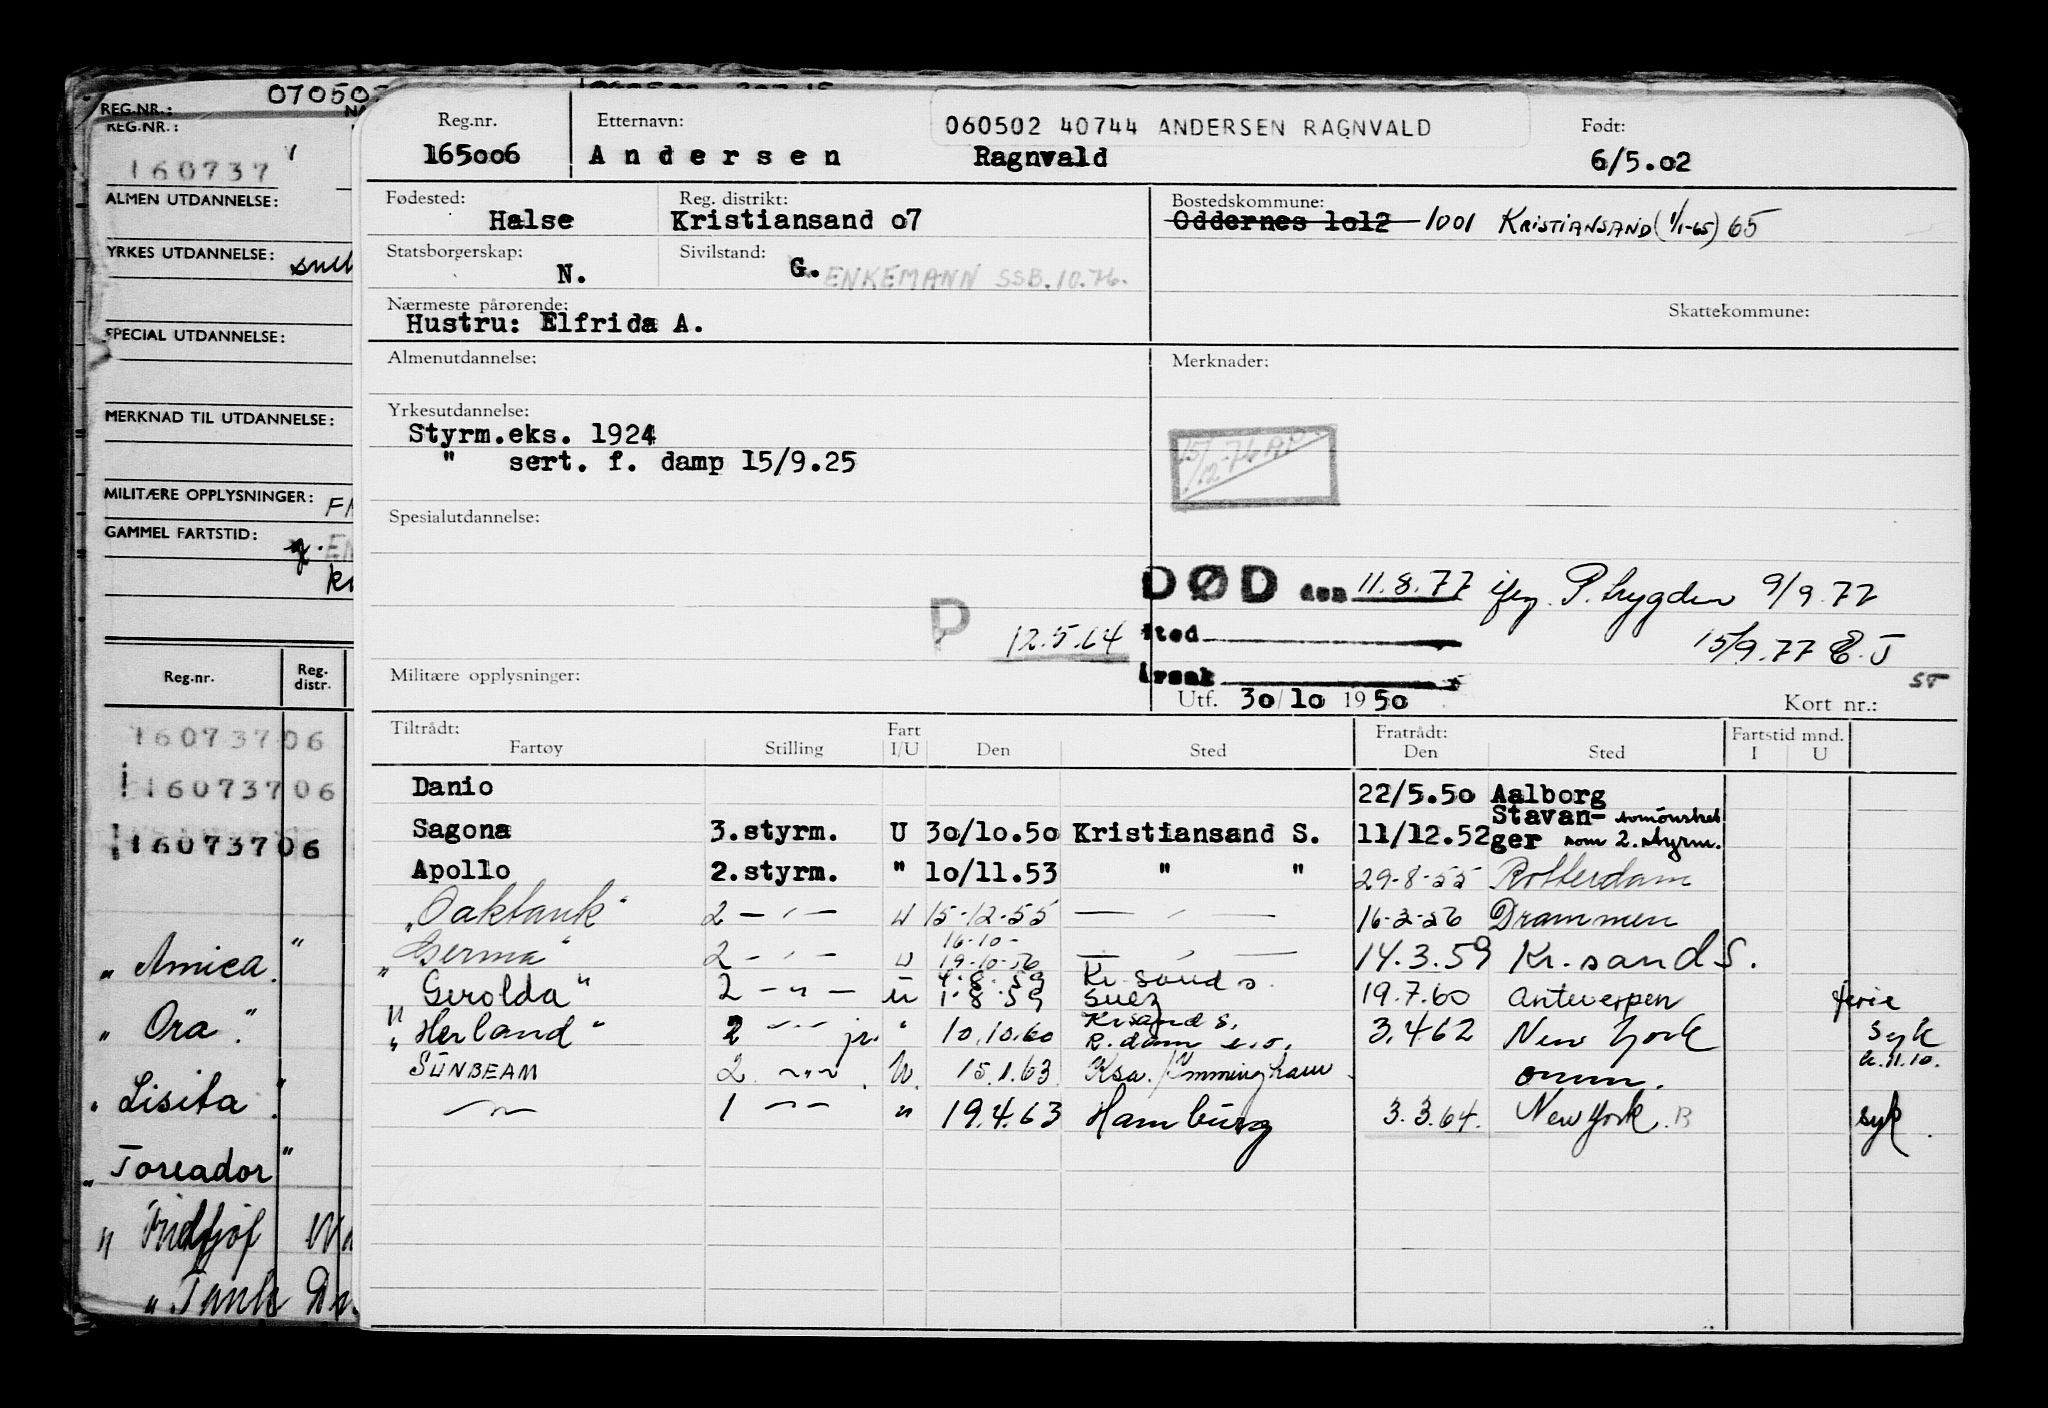 070505
REG.NR.:
REG.NR.:
160737
ALMEN UTDANNELSE:
YRKES UTDANNELSE:
SPECIAL UTDANNELSE:
MERKNAD TIL UTDANNELSE:
MILITÆRE OPPLYSNINGER:
GAMMEL FARTSTID:
Reg.nr. Reg. distr.
160737 06
160737 06
160737 06
" Amica "
" Ora "
" Lisita "
" Toreador "
" Fridtjof
" Tank
Reg.nr. Etternavn: 060502 40744 ANDERSEN RAGNVALD Født:
165006 Andersen Ragnvald 6/5.02
Fødested: Reg. distrikt: Bostedskommune:
Halse Kristiansand 07 Oddernes 1012 1001 KRISTIANSAND (1/1-65) 65
Statsborgerskap: Sivilstand:
N. G. ENKEMANN SSB.10.76.
Nærmeste pårørende: Skattekommune:
Hustru: Elfrida A.
Almenutdannelse: Merknader:
Yrkesutdannelse:
Styrm.eks. 1924
" sert. f. damp 15/9.25
15/12-76 AP
Spesialutdannelse:
DØD den 11.8.77 ifg. P. trygden 9/9.77
P 12.5.64 Sted 15/9.77 E.J
Militære opplysninger: Årsak
Utf. 30/10 1950 Kort nr.:
Tiltrådt: Fart Fratrådt: Fartstid mnd.
Fartøy Stilling I/U Den Sted Den Sted I U
Danio 22/5.50 Aalborg
Sagona 3.styrm. U 30/10.50 Kristiansand S. 11/12.52 Stavan-ger som 2. styrm.
Apollo 2.styrm. " 10/11.53 " " 29-8-55 Rotterdam
"Oaktank" 2 - " - U 15-12-55 — " — 16-2-56 Drammen
"Germa" 2 - " - U 16-10- 19-10-56 — " — 14.3.59 Kr.sand S.
"Gerolda" 2 - " - U 4.8.59 1.8.59 Kr.sand s. Suez 19.7.60 Antwerpen ferie
"Herland" 2 - " - jr. " 10.10.60 Krsand S. R.dam e.o. 3.4.62 New York syk
SUNBEAM 2 - " - U. 15.1.63 Ksa./Immingham omm.
- " - 1 - " - " 19.4.63 Hamburg 3.3.64. New York. B syk.